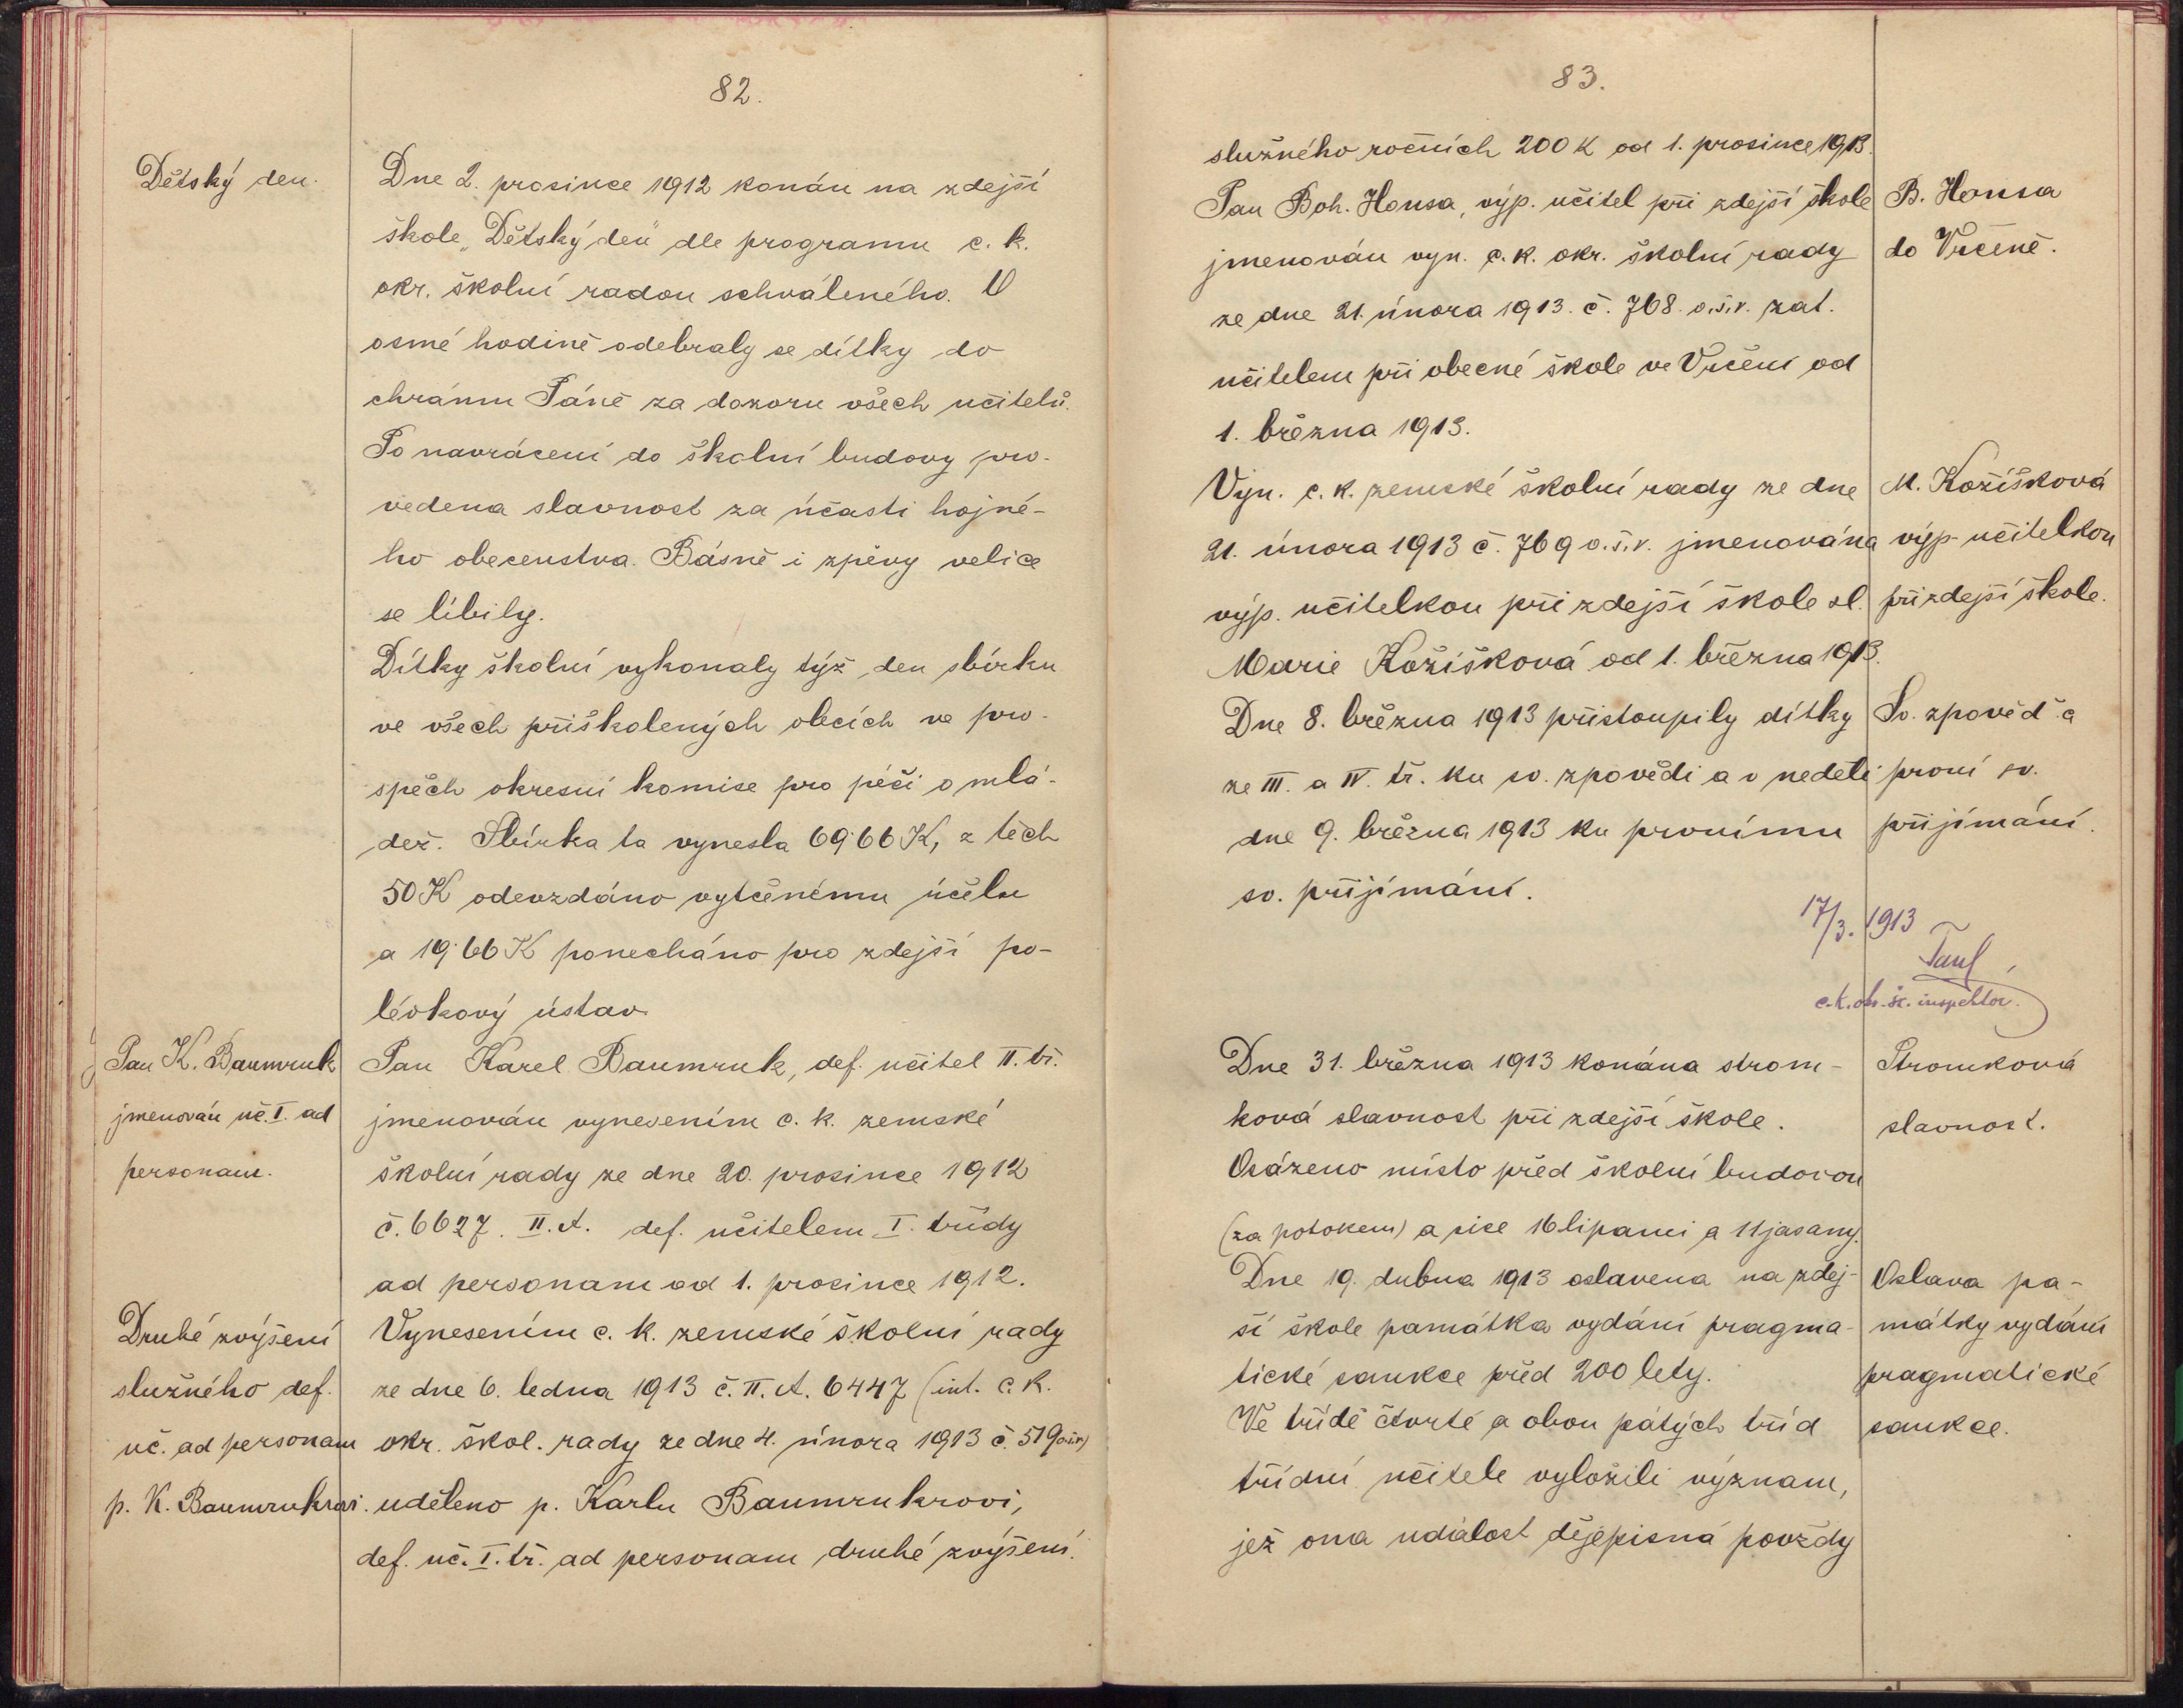 82.
Dětský den.
Dne 2. prosince 1912 konán na zdejší
škole „Dětský den“ dle programu c. k.
okr. školní radou schváleného. V
osmé hodině odebraly se dítky do
chrámu Páně za dozoru všech učitelů.
Po navrácení do školní budovy pro-
vedena slavnost za účasti hojné-
ho obecenstva. Básně i zpěvy velice
se líbily.
Dítky školní vykonaly týž den sbírku
ve všech přiškolených obcích ve pro-
spěch okresní komise pro péči o mlá-
dež. Sbírka ta vynesla 69·66 K, z těch
50 K odevzdáno vytčenému účelu
a 19·66 K ponecháno pro zdejší po-
lévkový ústav.
Pan K. Baumruk
jmenován uč. I. ad
personam.
Pan Karel Baumruk, def. učitel II. tř.
jmenován vynesením c. k. zemské
školní rady ze dne 20. prosince 1912
č. 6627. II. A. def. učitelem I. třídy
ad personam od 1. prosince 1912.
Druhé zvýšení
služného def.
uč. ad personam
p. K. Baumrukrovi.
Vynesením c. k. zemské školní rady
ze dne 6. ledna 1913 č. II. A. 6447 (int. c. k.
okr. škol. rady ze dne 4. února 1913 č. 519 o.š.r.)
uděleno p. Karlu Baumrukrovi,
def. uč. I. tř. ad personam druhé zvýšení
83.
služného ročních 200 K od 1. prosince 1913.
Pan Boh. Honsa, výp. učitel při zdejší škole
jmenován vyn. c. k. okr. školní rady
ze dne 21. února 1913. č. 768. o.š.r. zat.
učitelem při obecné škole ve Vrčeni od
1. března 1913.
B. Honsa
do Vrčeně.
Vyn. c. k. zemské školní rady ze dne
21. února 1913 č. 769 o.š.r. jmenována
výp. učitelkou při zdejší škole sl.
Marie Kožíšková od 1. března 1913.
M. Kožíšková
výp. učitelkou
při zdejší škole.
Dne 8. března 1913 přistoupily dítky
ze III. a IV. tř. ku sv. zpovědi a v neděli
dne 9. března 1913 ku prvnímu
sv. přijímání.
Sv. zpověď a
první sv.
přijímání.
17/3. 1913
c. k. okr. šk. inspektor.
Dne 31. března 1913 konána strom-
ková slavnost při zdejší škole.
Osázeno místo před školní budovou
(za potokem) a sice 16 lipami a 11 jasany.
Stromková
slavnost.
Dne 19. dubna 1913 oslavena na zdej-
ší škole památka vydání pragma-
tické sankce před 200 lety.
Ve třídě čtvrté a obou pátých tříd
třídní učitelé vyložili význam,
jež ona událost dějepisná povždy
Oslava pa-
mátky vydání
pragmatické
sankce.